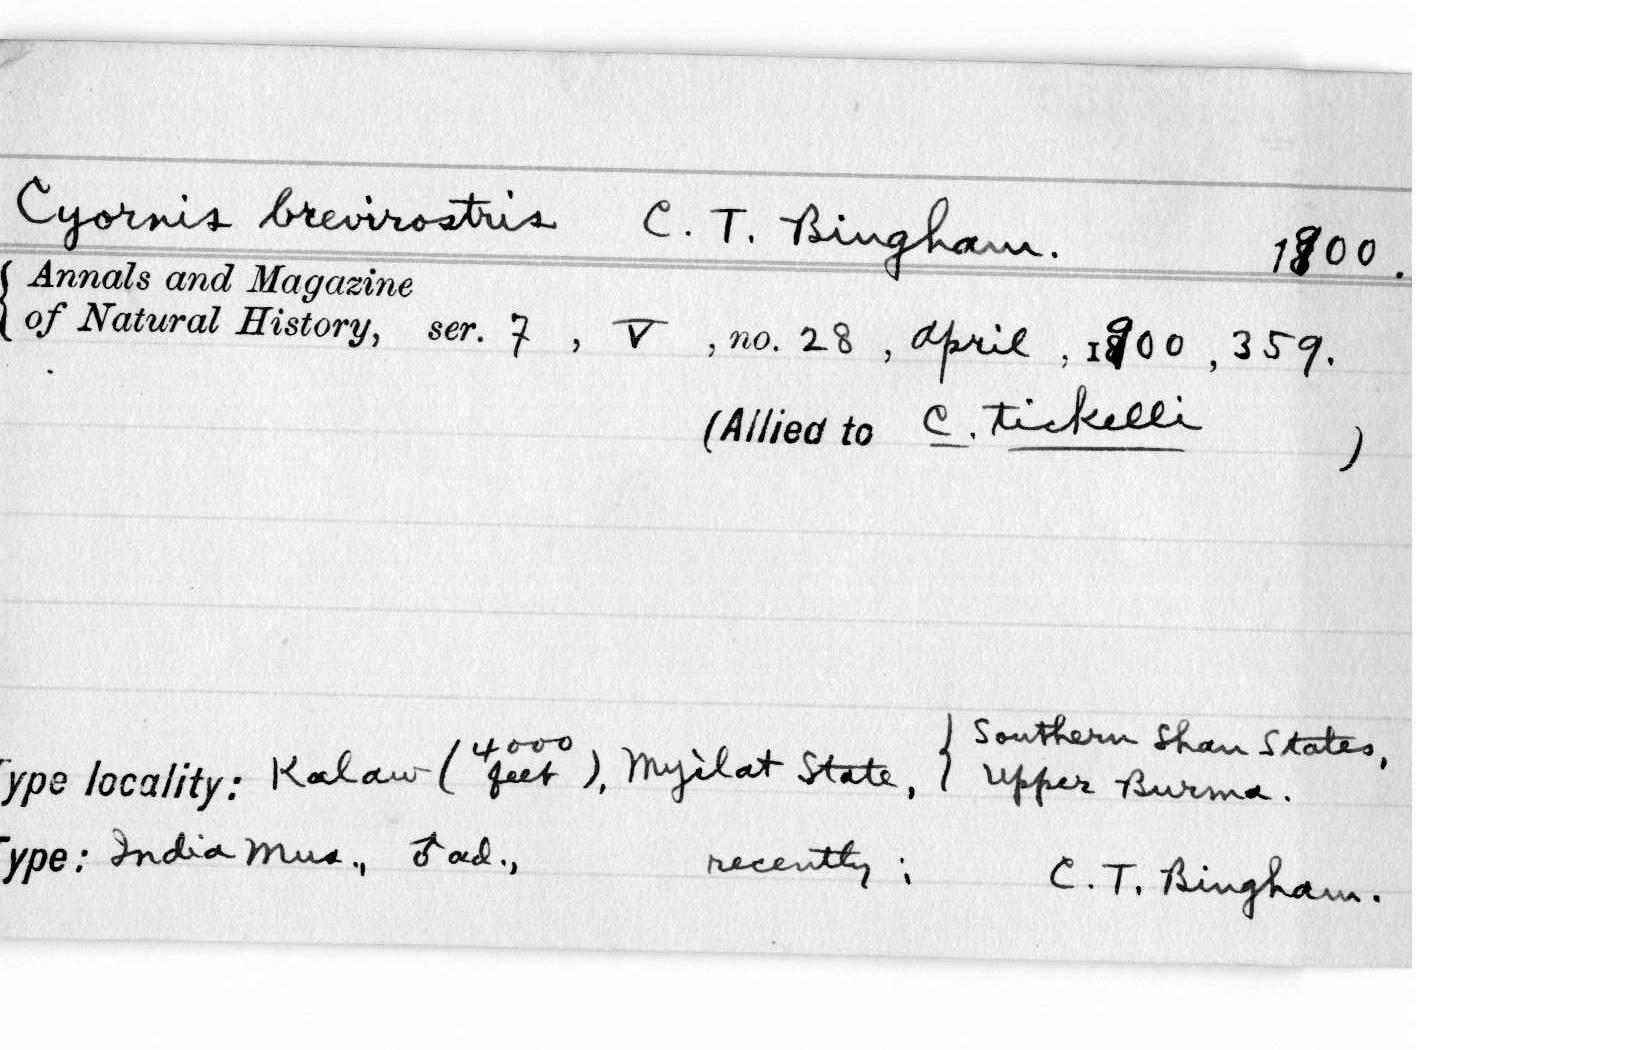 Cyornis brevirostris C. T. Bingham. 1900.
{ Annals and Magazine
of Natural History, ser. 7, V, no. 28, April, 1900, 359.
(Allied to C. tickelli )
Type locality: Kalaw (4000 feet), Myilat State, { Southern Shan States, Upper Burma.
Type: India Mus., ♂ ad., recently; C. T. Bingham.